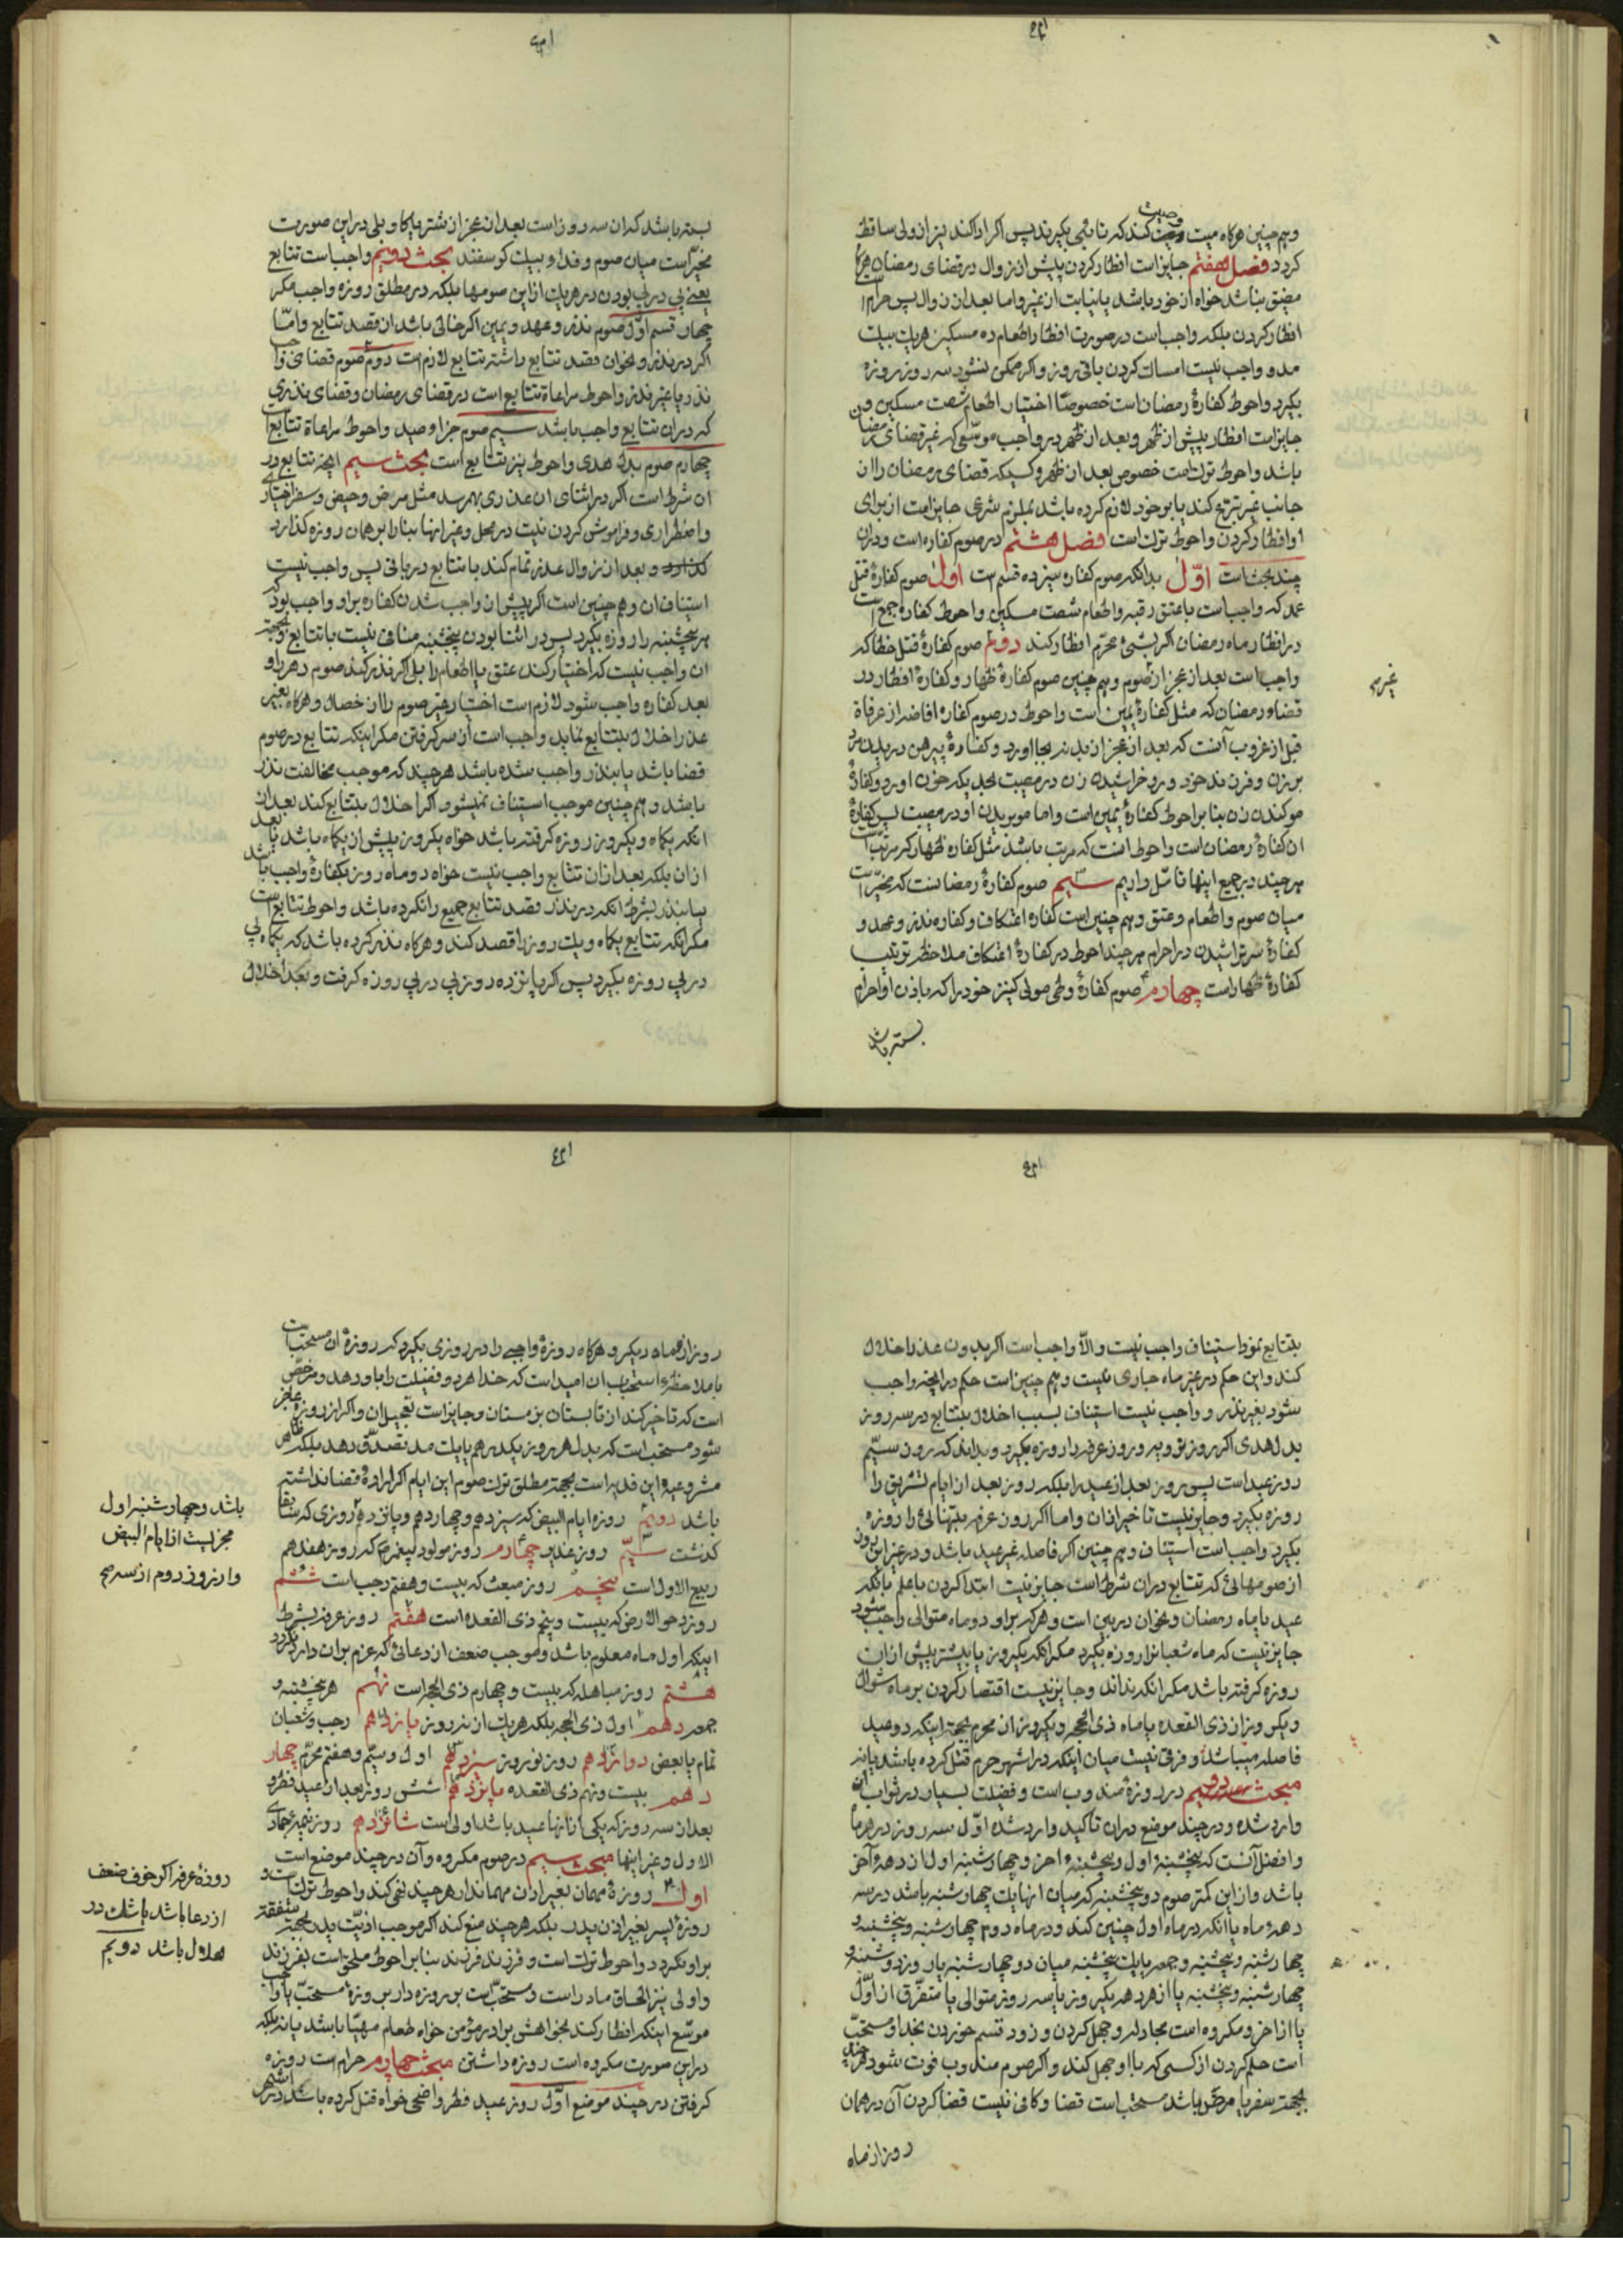 وهم چنین هرگاه میت وصیت کند که نائبی بگیرند پس اگر ادا کند نیز از ولی ساقط
کردد فصل هفتم جایز است افطار کردن پیش از زوال در قضای رمضان هرگاه
مضیق نباشد خواه از خود باشد یا نیابت از غیر واما بعد از زوال پس حرام است
افطار کردن بلکه واجب است در صورت افطار اطعام ده مسکین هر یک بیک
مد و واجب نیست امساک کردن باقی روز و اکر ممکن نشود سه روز روزه
بکیرد واحوط کفارهٔ رمضان است خصوصا اختیار اطعام شصت مسکین و
جایز است افطار پیش از ظهر وبعد از ظهر در واجب موسعی که غیر قضای رمضان
باشد واحوط ترک است خصوص بعد از ظهر وکسیکه قضای رمضان را از
جانب غیر تبرع کند یا بر خود لازم کرده باشد بملزم شرعی جایز است از برای
او افطار کردن واحوط ترک است فصل هشتم در صوم کفاره است ودران
چند بحث است اول بدانکه صوم کفاره سیزده قسم است اول صوم کفارهٔ قتل
عمد که واجب است با عتق رقبه واطعام شصت مسکین واحوط کفارهٔ جمع است
در افطار ماه رمضان اکر بشیء محرم افطار کند دوم صوم کفارهٔ قتل خطا که
واجب است بعد از عجز از صوم وهم چنین صوم کفارهٔ ظهار وکفارهٔ افطار در
قضاء رمضان که مثل کفارهٔ یمین است واحوط در صوم کفاره افاضه از عرفاة
قبل از غروب آنست که بعد از عجز از بدنه بجا اورد وکفارهٔ پیرهن دریدن مرد
بر زن وفرزند خود ورو خراشیدن زن در مصیبت بحدیکه خون اورد وکفارهٔ
مو کندن زن بنابر احوط کفارهٔ یمین است واما مو بریدن او در مصیبت پس کفارهٔ
ان کفارهٔ رمضان است واحوط انست که مرتب باشد مثل کفاره ظهار که مرتب است
هر چند در جمیع اینها تامل داریم سیم صوم کفارهٔ رمضانست که مخیر است
میان صوم واطعام وعتق وهم چنین است کفاره اعتکاف وکفاره نذر وعهد و
کفارهٔ سر تراشیدن در احرام هر چند احوط در کفارهٔ اعتکاف ملاحظه ترتیب
کفارهٔ ظهار است چهارم صوم کفارهٔ وطی مولی کنیز خود را که باذن او احرام
بسته باشد
بسته باشد که ان سه روز است بعد از عجز از شتر یا کاو بلی در این صورت
مخیر است میان صوم و فداء بیک کوسفند بحث دویم واجب است تتابع
یعنی پی در پی بودن در هر یک از این صومها بلکه در مطلق روزه واجب مکر
چهار قسم اول صوم نذر وعهد ویمین اکر خالی باشد از قصد تتابع واما
اکر در نذر ونحو ان قصد تتابع داشته تتابع لازم است دوم صوم قضای واجب
نذر یا غیر نذر واحوط مراعاة تتابع است در قضای رمضان وقضای نذری
که دران تتابع واجب باشد سیم صوم جزاء صید واحوط مراعاة تتابع است
چهارم صوم بدل هدی واحوط نیز تتابع است بحث سیم انچه تتابع در
ان شرط است اکر در اثنای ان عذری بهم رسد مثل مرض وحیض وسفر اختیاری
واضطراری وفراموش کردن نیت در محل وغیر اینها بنا را بر همان روزه کذارد
کذارد و بعد از زوال عذر تمام کند با تتابع در باقی پس واجب نیست
استیناف ان وهم چنین است اکر پیش از واجب شدن کفاره بر او واجب بود که
هر پنجشنبه را روزه بکیرد پس در اثنا بودن پنجشنبه منافی نیست با تتابع وبجهة
ان واجب نیست که اختیار کند عتق یا اطعام را بلی اکر نذر کند صوم دهر را و
بعد کفاره واجب شود لازم است اختیار غیر صوم را از خصال وهرگاه بغیر
عذر اخلال بتتابع نماید واجب است از سر کرفتن مکر اینکه تتابع در صوم
قضا باشد یا بنذر واجب شده باشد هر چند که موجب مخالفت نذر
باشد وهم چنین موجب استیناف نمیشود اکر اخلال بتتابع کند بعد از
انکه یکماه ویکروز روزه کرفته باشد خواه یکروز پیش از یکماه باشد یا بعد
از ان بلکه بعد از ان تتابع واجب نیست خواه دو ماه روزه بکفارهٔ واجب باشد
یا بنذر بشرط انکه در نذر قصد تتابع جمیع را نکرده باشد واحوط تتابع است
مکر انکه تتابع یکماه ویک روز را قصد کند وهرکاه نذر کرده باشد که یکماه پی
در پی روزه بکیرد پس اکر پانزده روز پی در پی روزه کرفت وبعد اخلال
بتتابع نمود استیناف واجب نیست والا واجب است اکر بدون عذر اخلال
کند واین حکم در غیر ماه جاری نیست وهم چنین است حکم در انچه واجب
شود بغیر نذر و واجب نیست استیناف بسبب اخلال بتتابع در سه روز
بدل هدی اکر روز ترویه وروز عرفه را روزه بکیرد وبداند که روز سیم
روز عید است پس روز بعد از عید را بلکه روز بعد از ایام تشریق را
روزه بکیرد وجایز نیست تاخیر از ان واما اکر روز عرفه بتنهائی را روزه
بکیرد واجب است استیناف وهم چنین اکر فاصله غیر عید باشد ودر غیر این روز
از صومهائی که تتابع دران شرط است جایز نیست ابتدا کردن با علم بانکه
عید یا ماه رمضان ونحو ان در بین است وهر که بر او دو ماه متوالی واجب شود
جایز نیست که ماه شعبان را روزه بکیرد مکر انکه یکروز یا بیشتر پیش از ان
روزه کرفته باشد مکر انکه نداند وجایز نیست اقتصار کردن بر ماه شوال
ویکروز از ذی القعده یا ماه ذی الحجه ویکروز از محرم بجهة اینکه دو عید
فاصله میباشد وفرقی نیست میان اینکه در اشهر حرم قتل کرده باشد یا نه
مبحث دویم در روزهٔ مندوب است وفضیلت بسیار در ثواب ان
وارد شده ودر چند موضع دران تاکید وارد شده اول سه روز در هر ماه
وافضل آنست که پنجشنبهٔ اول وپنجشنبهٔ اخر وچهارشنبه اول از دههٔ آخر
باشد واز این کمتر صوم دو پنجشنبه که میان انها یک چهارشنبه باشد در سه
دههٔ ماه یا انکه در ماه اول چنین کند ودر ماه دوم چهارشنبه وپنجشنبه و
چهارشنبه وپنجشنبه وجمعه یا یک پنجشنبه میان دو چهارشنبه یا روز دوشنبه و
چهارشنبه وپنجشنبه یا از هر دهه یکروز یا سه روز متوالی یا متفرق از اول
یا از اخر ومکروه است مجادله وجهل کردن و زود قسم خوردن بخدا ومستحب
است حلم کردن از کسی که بااو جهل کند واکر صوم مندوب فوت شود هر چند
بجهة سفر یا مرض باشد مستحب است قضا وکافی نیست قضا کردن آن در همان
روز از ماه
روز از ماه دیکر وهرکاه روزهٔ واجبی را در روزی بکیرد که روزهٔ ان مستحب است
با ملاحظهٔ استحباب ان امید است که خدا هر دو فضیلت را باو دهد ومرخص
است که تاخیر کند از تابستان بزمستان وجایز است تعجیل ان واکر از روزه عاجز
شود مستحب است که بدل هر روز یکدرهم یا یک مد تصدق دهد بلکه ظاهر
مشروعیة این فدیه است بجهة مطلق ترک صوم این ایام اکر ارادهٔ قضا نداشته
باشد دویم روزه ایام البیض که سیزدهم وچهاردهم وپانزدهم روزی که سابقا
کذشت سیم روز غدیر چهارم روز مولود پیغمبر ص که روز هفدهم
ربیع الاول است پنجم روز مبعث که بیست وهفتم رجب است ششم
روز دحو الارض که بیست وپنجم ذی القعده است هفتم روز عرفه بشرط
اینکه اول ماه معلوم باشد وموجب ضعف از دعائی که عزم بران دارد نکردد
هشتم روز مباهله که بیست وچهارم ذی الحجه است نهم هر پنجشنبه و
جمعه دهم اول ذی الحجه بلکه هر یک از نه روز یازدهم رجب وشعبان
تمام یا بعض دوازدهم روز نوروز سیزدهم اول وسیم وهفتم محرم چهار
دهم بیست ونهم ذی القعده پانزدهم شش روز بعد از عید فطر و
بعد از سه روز که یکی از انها عید باشد اولی است شانزدهم روز نیمهٔ جمادی
الاول وغیر اینها مبحث سیم در صوم مکروه وآن در چند موضع است
اول روزهٔ مهمان بغیر اذن مهماندار هر چند نهی نکند واحوط ترک است و
روزهٔ پسر بغیر اذن پدر بلکه هر چند منع کند اکر موجب اذیت پدر بجهة شفقة
بر او نکردد واحوط ترک است وفرزند فرزند بنابر احوط ملحق است بفرزند
واولی نیز الحاق مادر است ومستحب است بر روزه دار بروزهٔ مستحب یا واجب
موسع اینکه افطار کند بخواهش برادر مؤمن خواه طعام مهیا باشد یا نه بلکه
در این صورت مکروه است روزه داشتن مبحث چهارم حرام است روزه
کرفتن در چند موضع اول روز عید فطر واضحی خواه قتل کرده باشد در اشهر
باشد وچهارشنبه اول
مجزیست از ایام البیض
روزهٔ عرفه اکر خوف ضعف
از دعا باشد یا شک در
هلال باشد دویم